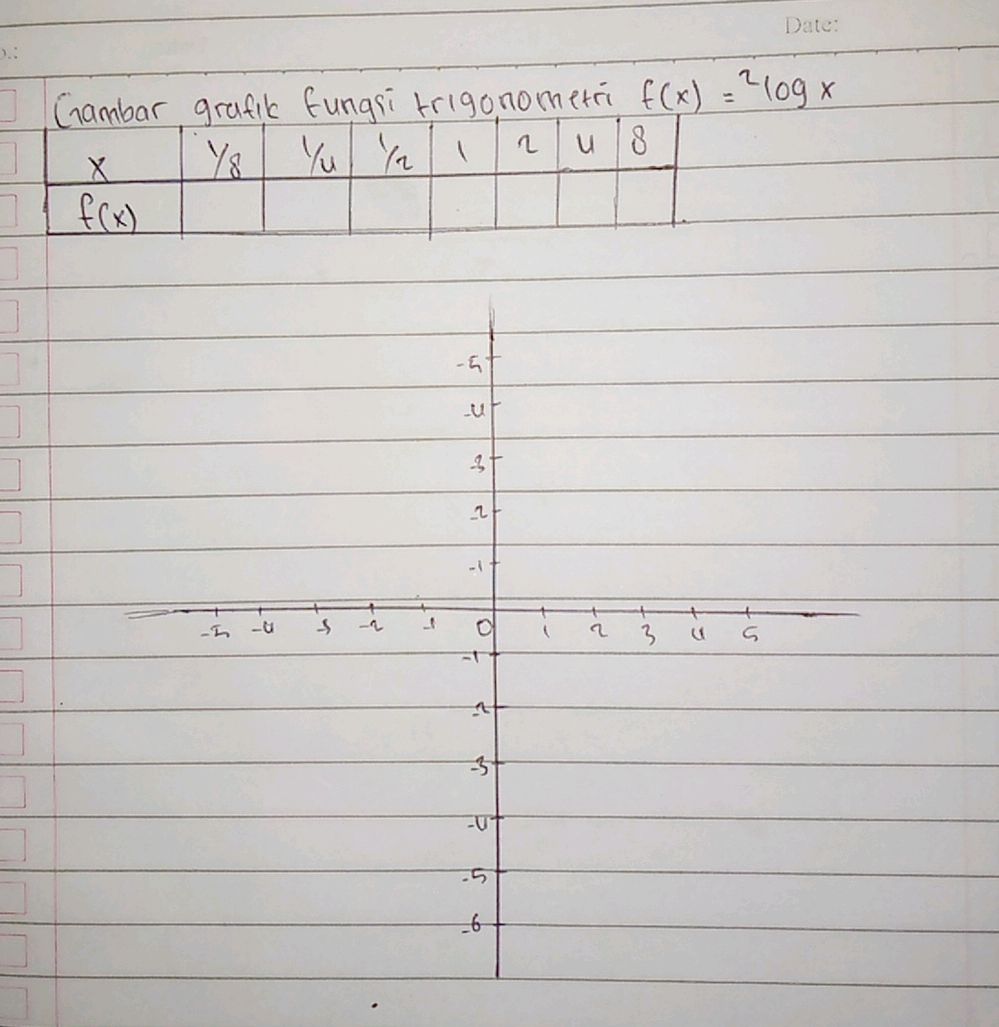 Date:
Gambar grafik fungsi trigonometri f(x) = ²log x
x 1/8 1/4 1/2 1 2 4 8
f(x)
-5
-4
3
-2
-1
-5 -4 -3 -2 -1 0 1 2 3 4 5
-1
-2
-3
-4
-5
-6